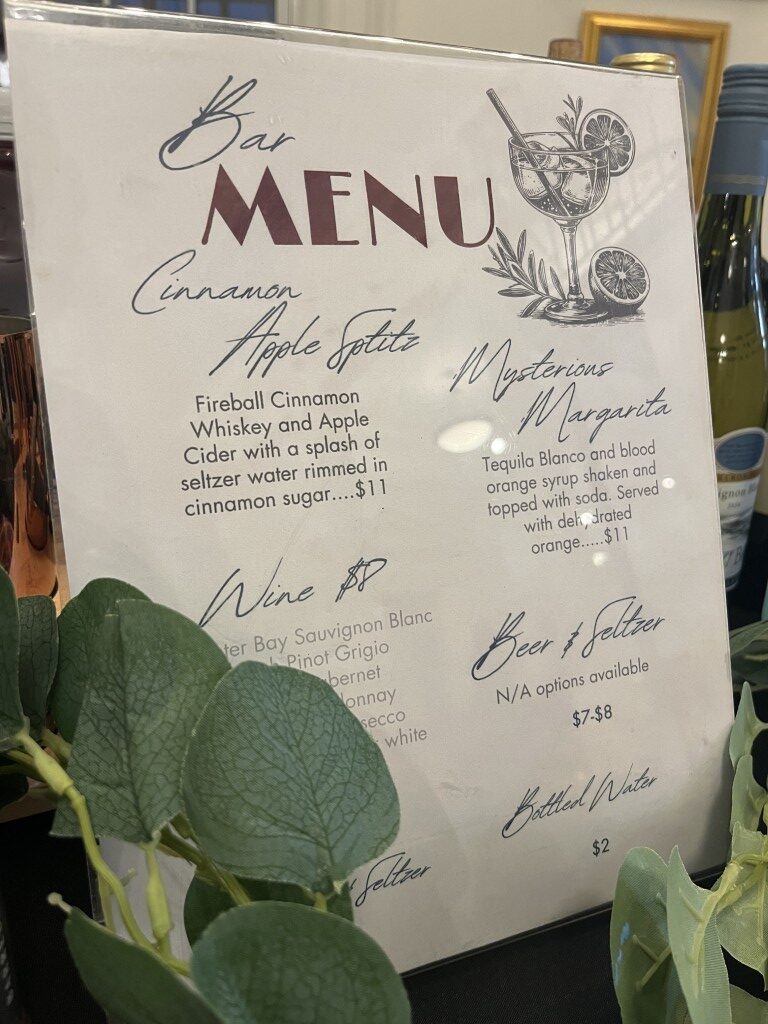 Bar
MENU
Cinnamon
Apple Spritz
Fireball Cinnamon
Whiskey and Apple
Cider with a splash of
seltzer water rimmed in
cinnamon sugar....$11
Mysterious
Margarita
Tequila Blanco and blood
orange syrup shaken and
topped with soda. Served
with dehydrated
orange.....$11
Wine $8
Bay Sauvignon Blanc
Pinot Grigio
white
Beer & Seltzer
N/A options available
$7-$8
Bottled Water
$2
Seltzer